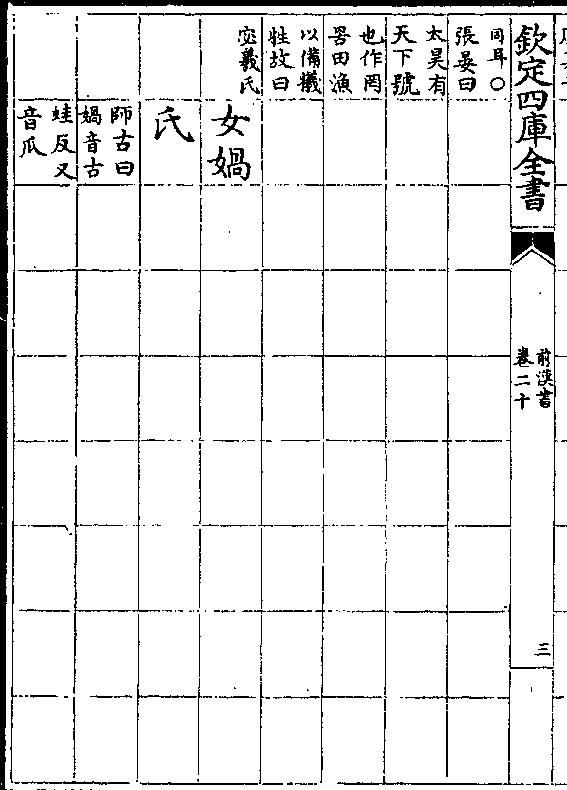 欽定四庫全書
前漢書
卷二十
三
同耳○
張晏曰
太昊有
天下號
也作罔
罟田漁
以備犧
牲故曰
宓羲氏
女媧
氏
師古曰
媧音古
蛙反又
音瓜